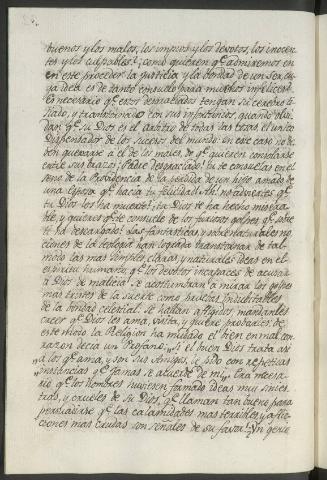 buenos y los malos, los impios y los devotos, los inocen-
tes y los culpables? ¿como quieren qᵉ admiremos en
en este proceder la justicia y la bondad de un Ser, cu-
ya idea es de tanto consuelo para muchos infelices?
Es necesario qᵉ esos desdichados tengan su cerebro
y trastornado con sus infortunios, quando olvi-
dan qᵉ su Dios es el arbitro de todas las cosas, el unico
dispensador de los sucesos del mundo: en este caso no de-
ben quexarse à el de los males, de qᵉ quieren consolarse
entre sus brazos? ¡Padre desgraciado! tu te consuelas en el
seno de la Providencia de la perdida de un hijo amado, de
una esposa qᵉ hacia tu felicidad! Ah! no adviertes qᵉ
tu Dios los ha muerto? tu Dios te ha hecho misera-
ble, y quieres qᵉ te consuele de los furiosos golpes, qᵉ sobre
te ha descargado! Las fantasticas y sobrenaturales no-
ciones de la teologia han logrado trastornar de tal
modo las mas simples, claras, y naturales ideas en el
espiritu humano, qᵉ los devotos incapaces de acusar
à Dios de malicia, se acostumbran à mirar los golpes
mas tristes de la suerte como pruebas indubitables
de la bondad celestial. Se hallan afligidos, mandanles
creer qᵉ Dios les ama, visita, y quiere probarles: de
este modo la Religion ha mudado el bien en mal. Con
razon decia un Profano: „ si el buen Dios trata asi
„ à los qᵉ ama, y son sus Amigos, le pido con repetidas
„ instancias qᵉ jamas se acuerde de mi„. Era necesa-
rio qᵉ los hombres huviesen formado ideas muy sinies-
tras, y crueles de su Dios, qᵉ llaman tan bueno para
persuadirse qᵉ las calamidades mas terribles, y aflic-
ciones mas crudas son señales de su favor! Un genio